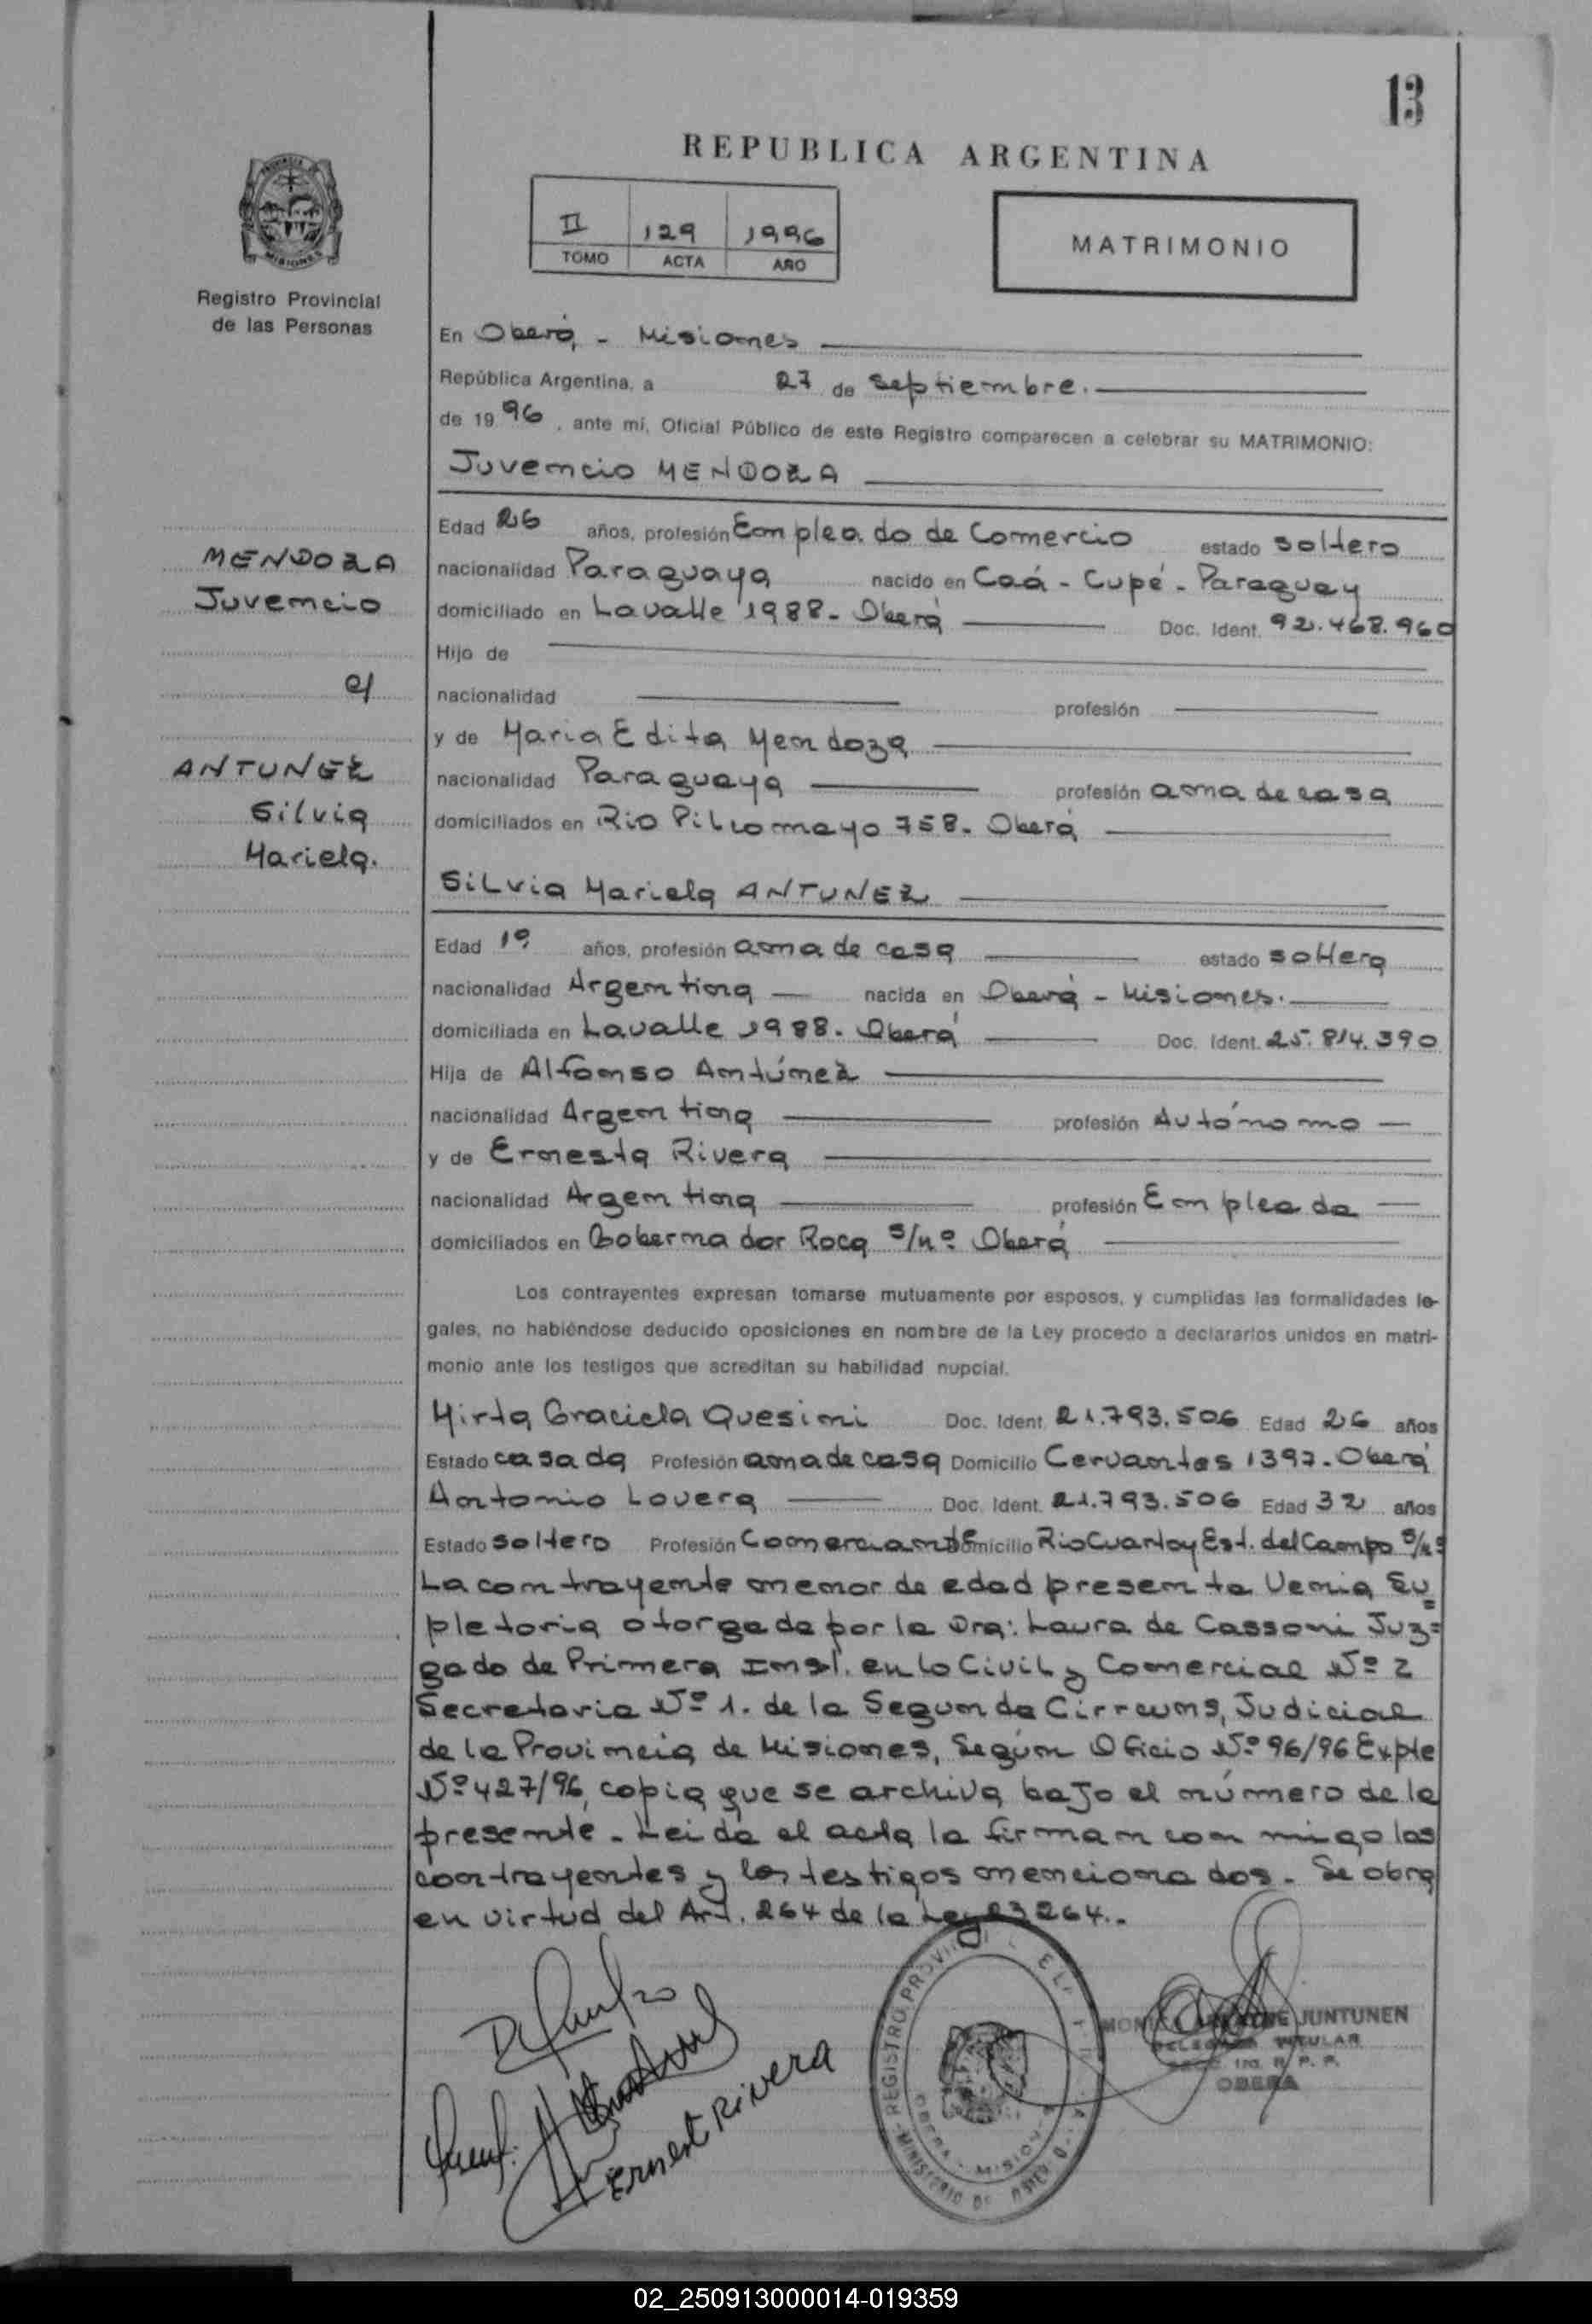 13
REPUBLICA ARGENTINA
II 129 1996
TOMO ACTA AÑO
MATRIMONIO
MISIONES
Registro Provincial
de las Personas
En Oberá - Misiones
República Argentina, a 27 de Septiembre.
de 1996, ante mí, Oficial Público de este Registro comparecen a celebrar su MATRIMONIO:
Juvencio MENDOZA
MENDOZA
Juvencio
c/
ANTUNEZ
Silvia
Mariela.
Edad 26 años, profesión Empleado de Comercio estado soltero
nacionalidad Paraguaya nacido en Caá - Cupé - Paraguay
domiciliado en Lavalle 1988 - Oberá Doc. Ident. 92.468.960
Hijo de
nacionalidad profesión
y de Maria Edita Mendoza
nacionalidad Paraguaya profesión ama de casa
domiciliados en Rio Pilcomayo 758 - Oberá
Silvia Mariela ANTUNEZ
Edad 19 años, profesión ama de casa estado soltera
nacionalidad Argentina nacida en Oberá - Misiones.
domiciliada en Lavalle 1988. Oberá Doc. Ident. 25.814.390
Hija de Alfonso Antúnez
nacionalidad Argentina profesión Autónomo
y de Ernesta Rivera
nacionalidad Argentina profesión Empleada
domiciliados en Gobernador Roca s/nº Oberá
Los contrayentes expresan tomarse mutuamente por esposos, y cumplidas las formalidades le-
gales, no habiéndose deducido oposiciones en nombre de la Ley procedo a declararlos unidos en matri-
monio ante los testigos que acreditan su habilidad nupcial.
Mirta Graciela Quesini Doc. Ident. 21.793.506 Edad 26 años
Estado casada Profesión ama de casa Domicilio Cervantes 1397 - Oberá
Antonio Lovera Doc. Ident. 21.793.506 Edad 32 años
Estado soltero Profesión Comerciante Domicilio Rio Cuarto y Est. del Campo s/nº
La contrayente menor de edad presenta Venia Su=
pletoria otorgada por la Dra: Laura de Cassoni Juz=
gado de Primera Inst. en lo Civil y Comercial Nº 2
Secretaria Nº 1. de la Segunda Circuns, Judicial
de la Provincia de Misiones, Según Oficio Nº 96/96 Expte
Nº 427/96, copia que se archiva bajo el número de la
presente - Leida el acta la firman con migo los
contrayentes y los testigos mencionados - Se obra
en virtud del Art. 264 de la Ley 23264..
Ernest Rivera
JUNTUNEN
TITULAR
R. P. P.
OBERA
REGISTRO PROVIN
MINISTERIO DE
OBERA - MISION
02_250913000014-019359